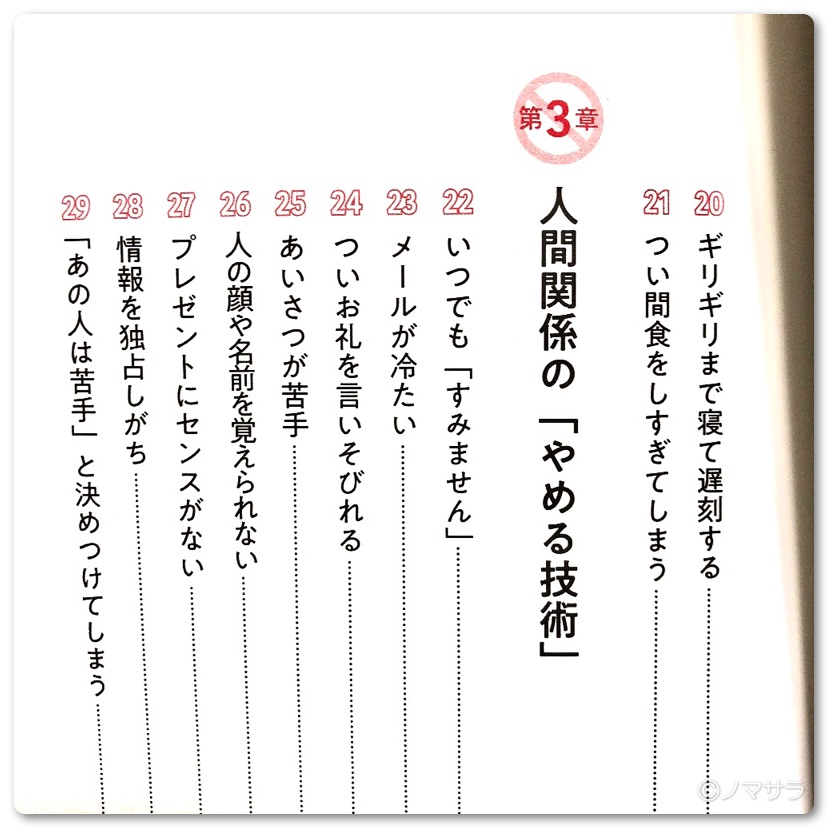 20 ギリギリまで寝て遅刻する
21 つい間食をしすぎてしまう
第3章
人間関係の「やめる技術」
22 いつでも「すみません」
23 メールが冷たい
24 ついお礼を言いそびれる
25 あいさつが苦手
26 人の顔や名前を覚えられない
27 プレゼントにセンスがない
28 情報を独占しがち
29 「あの人は苦手」と決めつけてしまう
©ノマサラ